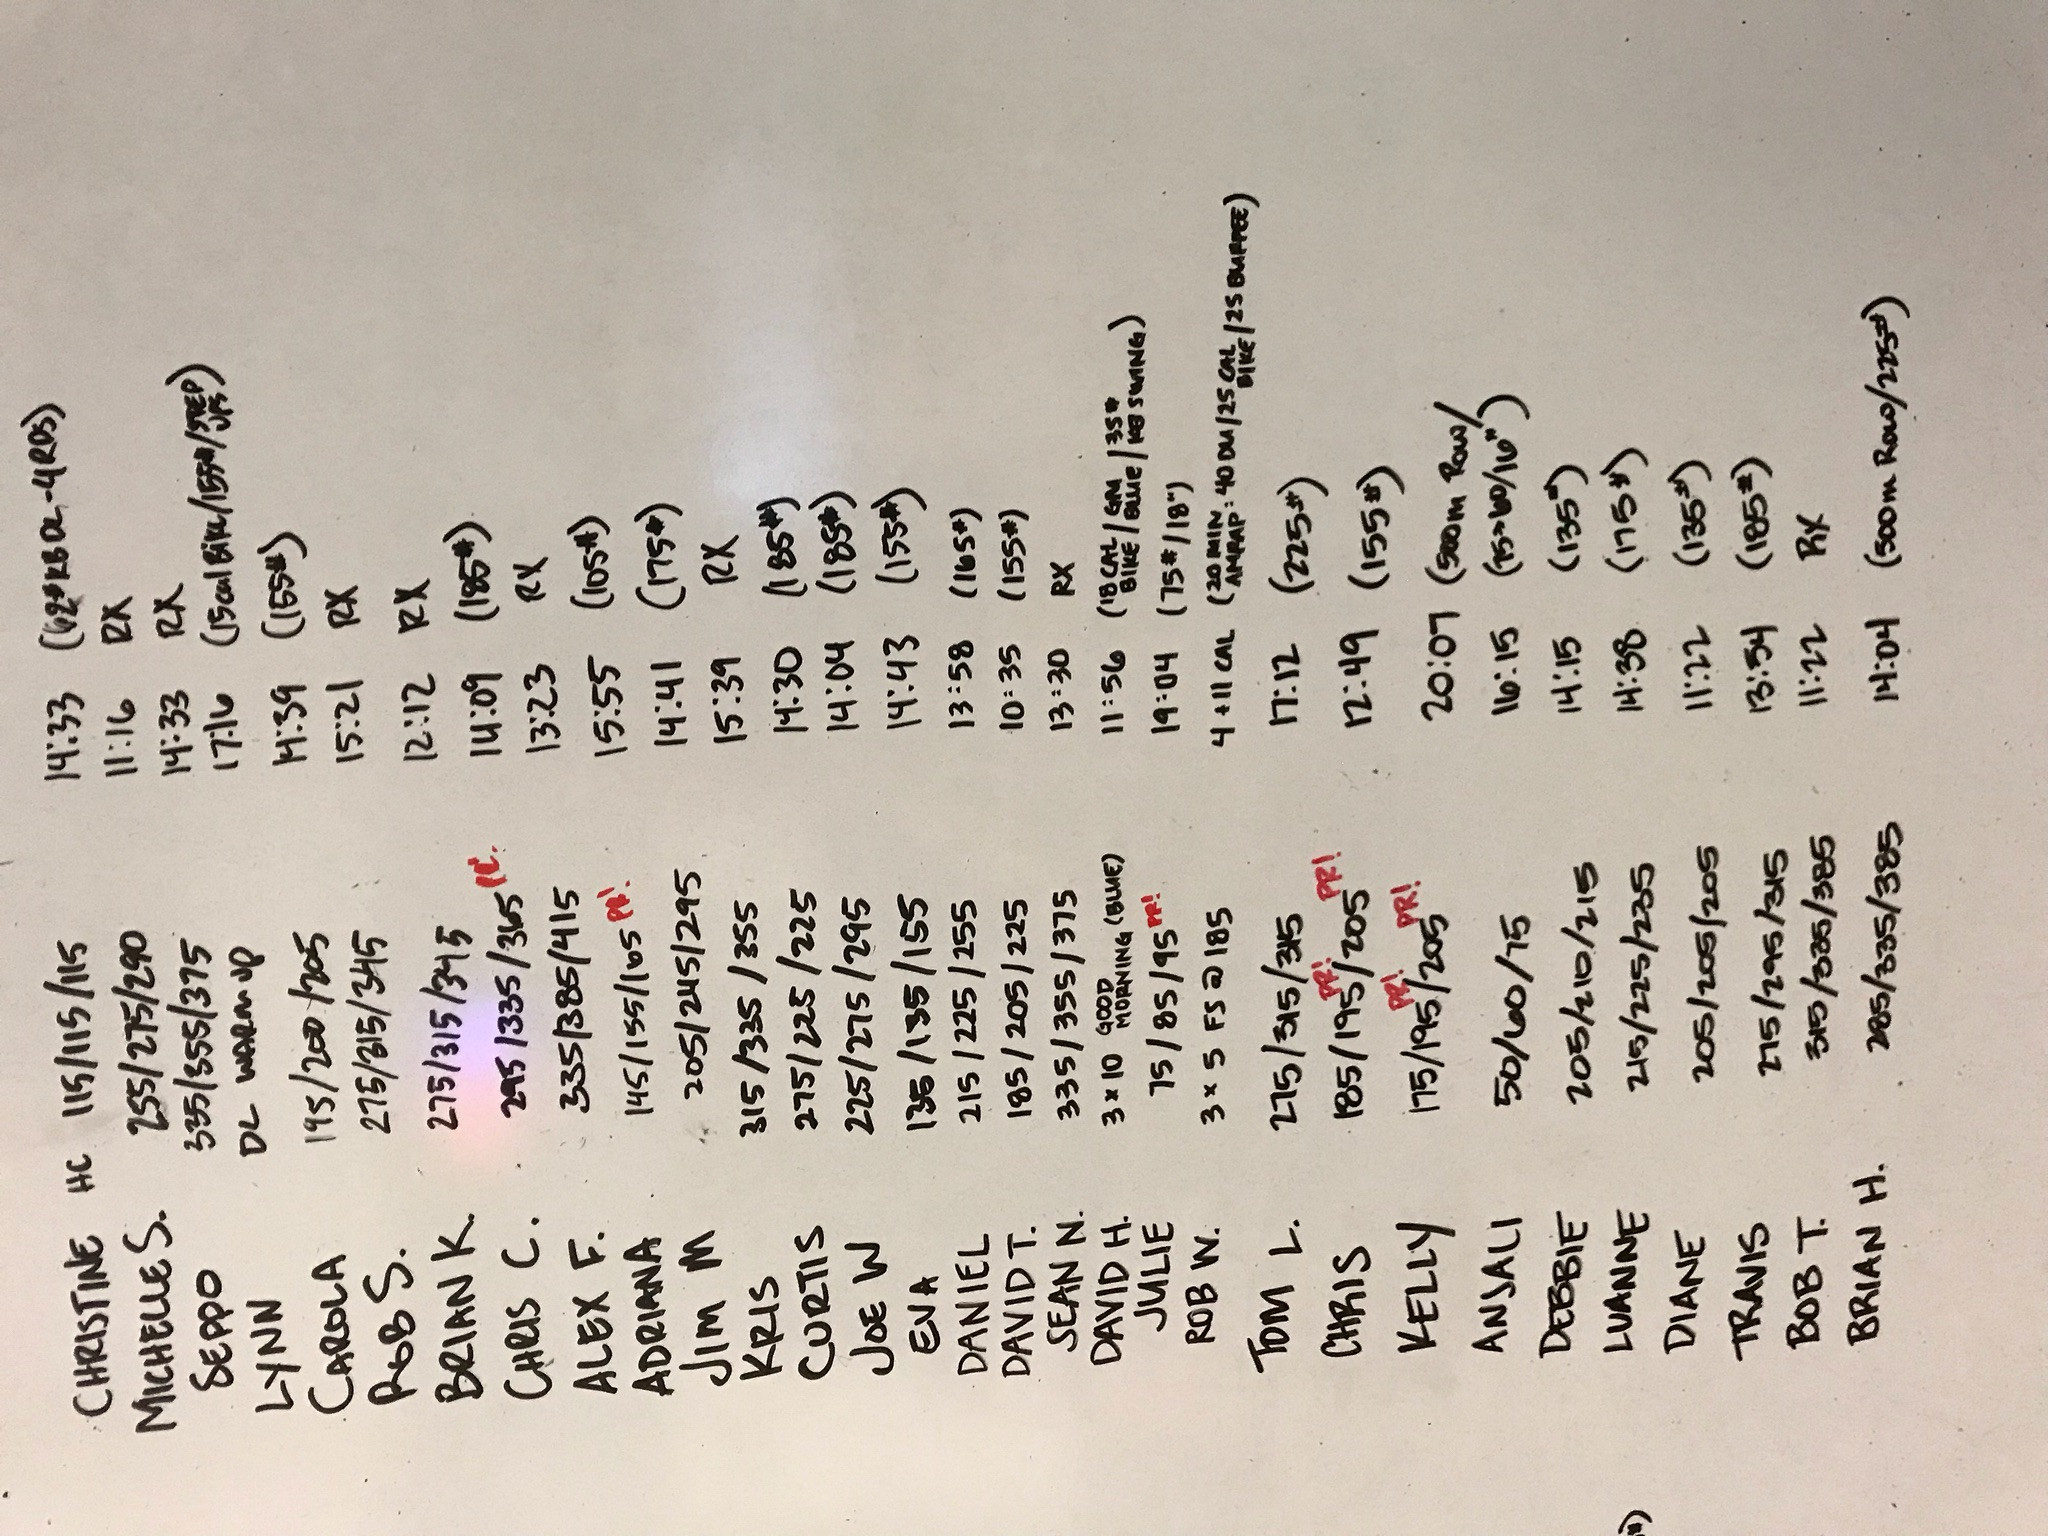 CHRISTINE HC 115/115/115 14:33 (62# KB DL-4RDS)
MICHELLE S. 255/275/290 11:16 RX
SEPPO 335/355/375 14:33 RX
LYNN DL WARM UP 17:16 (15 cal Bike/155#/STEP UPS)
CAROLA 195/200/205 14:39 (155#)
ROB S. 275/315/345 15:21 RX
BRIAN K. 275/315/345 12:12 RX
CHRIS C. 295/335/365 14:09 (185#)
ALEX F. 335/385/415 13:23 RX
ADRIANA 145/155/165 PR! 15:55 (105#)
JIM M 205/245/295 14:41 (175#)
KRIS 315/335/355 15:39 RX
CURTIS 275/225/225 14:30 (185#)
JOE W 225/275/295 14:04 (185#)
EVA 135/135/155 14:43 (155#)
DANIEL 215/225/255 13:58 (165#)
DAVID T. 185/205/225 10:35 (155#)
SEAN N. 335/355/375 13:30 RX
DAVID H. 3 x 10 GOOD MORNING (BLUE) 11:56 (18 CAL BIKE/GM BLUE/35# KB SWING)
JULIE 75/85/95 PR! 19:04 (75#/18")
ROB W. 3 x 5 FS @ 185 4+11 CAL (20 MIN AMRAP: 40 DU/25 CAL BIKE/25 BURPEE)
TOM L. 275/315/315 17:12 (225#)
CHRIS 185/195 PR!/205 PR! 12:49 (155#)
KELLY 175/195 PR!/205 PR! 20:07 (500m Row/
ANJALI 50/60/75 16:15 (75->60/16")
DEBBIE 205/210/215 14:15 (135#)
LUANNE 215/225/235 14:38 (175#)
DIANE 205/205/205 11:22 (135#)
TRAVIS 275/295/315 13:54 (185#)
BOB T. 315/335/385 11:22 RX
BRIAN H. 285/335/385 14:04 (500m Row/225#)